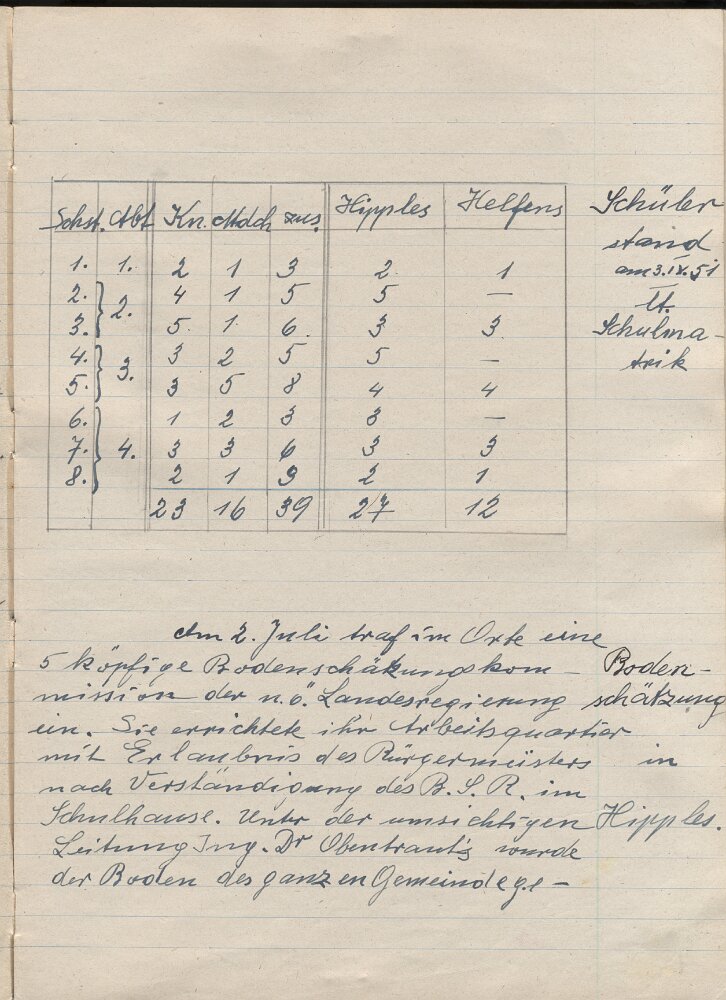 Schst. Abt Kn. Mdch zus. Hipples Helfens
1. 1. 2 1 3 2 1
2. 4 1 5 5 —
2.
3. 5 1 6 3 3
4. 3 2 5 5 —
3.
5. 3 5 8 4 4
6. 1 2 3 3 —
7. 4. 3 3 6 3 3
8. 2 1 3 2 1
23 16 39 27 12
Schüler
stand
am 3.IX.51
lt.
Schulma-
trik
Am 2. Juli traf im Orte eine
5 köpfige Bodenschätzungskom-
mission der n.ö. Landesregierung
ein. Sie errichtete ihr Arbeitsquartier
mit Erlaubnis des Bürgermeisters
nach Verständigung des B.S.R. im
Schulhause. Unter der umsichtigen
Leitung Ing. Dr Obentraut's wurde
der Boden des ganzen Gemeindege-
Boden-
schätzung
in
Hipples.